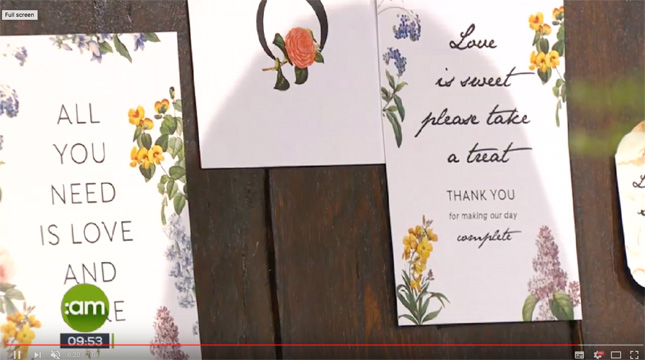 Full screen
ALL
YOU
NEED
IS LOVE
AND
Love
is sweet
please take
a treat
THANK YOU
for making our day
complete
:am
09:53